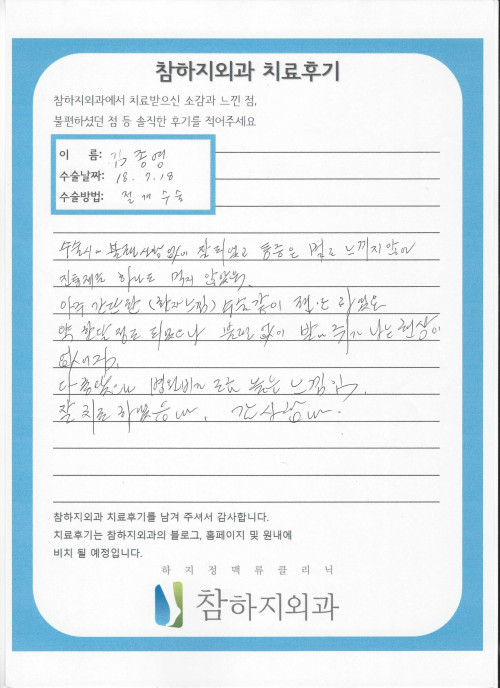 참하지외과 치료후기
참하지외과에서 치료받으신 소감과 느낀 점,
불편하셨던 점 등 솔직한 후기를 적어주세요
이 름: 김종영
수술날짜: 18. 7. 18
수술방법: 절개수술
수술시 불편사항 없이 잘 되었고 통증은 별로 느끼지 않아
진통제도 하나도 먹지 않았음.
아주 간단한 (환자느낌) 수술같이 했음
약 한달 정도 되었으나 불편 없이 발에 쥐가 나는 현상이
없어짐.
병원비가 조금 높은 느낌임.
잘 치료 하였습니다. 감사합니다.
참하지외과 치료후기를 남겨 주셔서 감사합니다.
치료후기는 참하지외과의 블로그, 홈페이지 및 원내에
비치 될 예정입니다.
하지정맥류클리닉
참하지외과